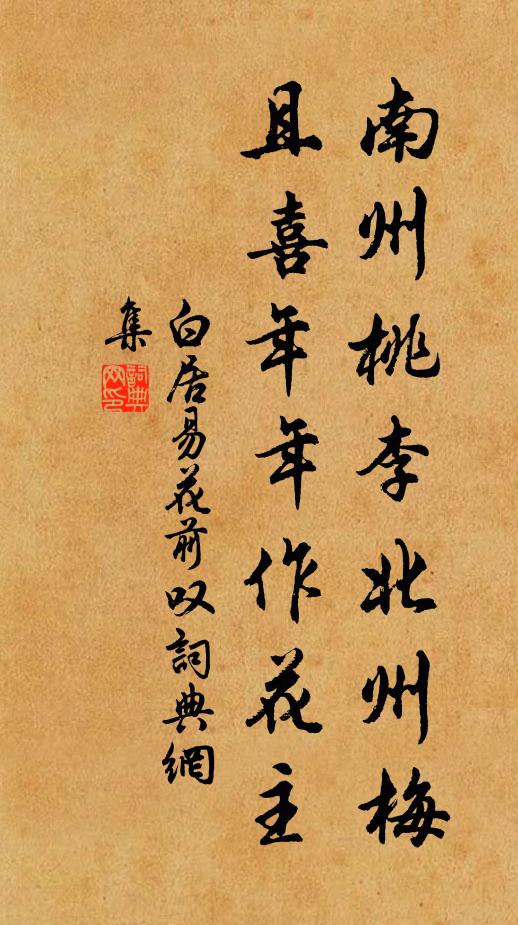 南州桃李北州梅
且喜年年作花主
白居易花前叹詞典網
集
詞典網印